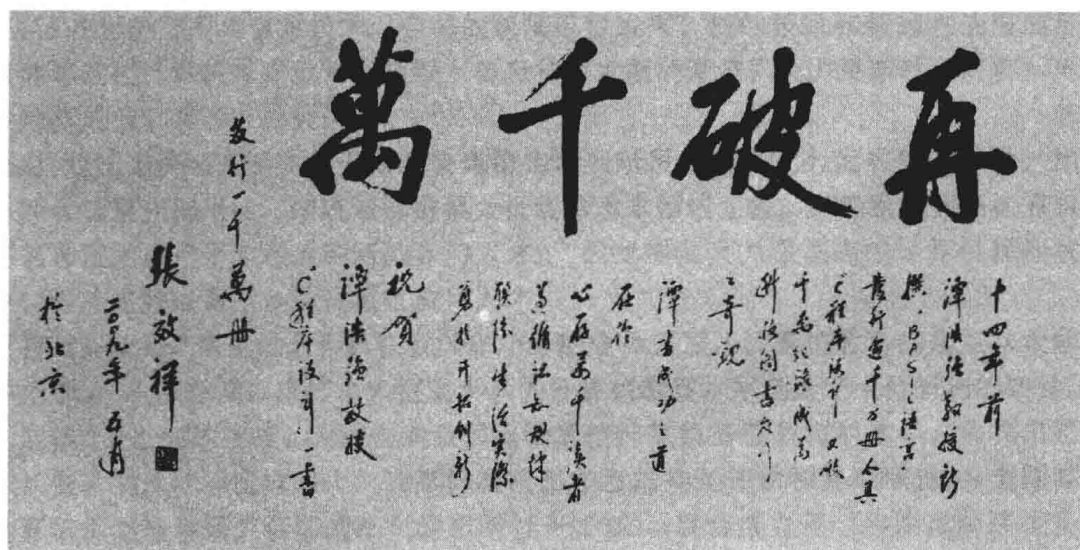 再破千萬
十四年前
譚浩強教授所
撰《BASIC語言》
發行逾千万册 今其
《C程序设计》又破
千万纪录 成為
科技图書发行
之奇观
譚書成功之道
在於
心存万千读者
遵循认知规律
联系生活实际
勇於开拓创新
祝贺
譚浩強教授
《C程序设计》一書
发行一千萬册
張效祥
二〇〇九年五月
於北京